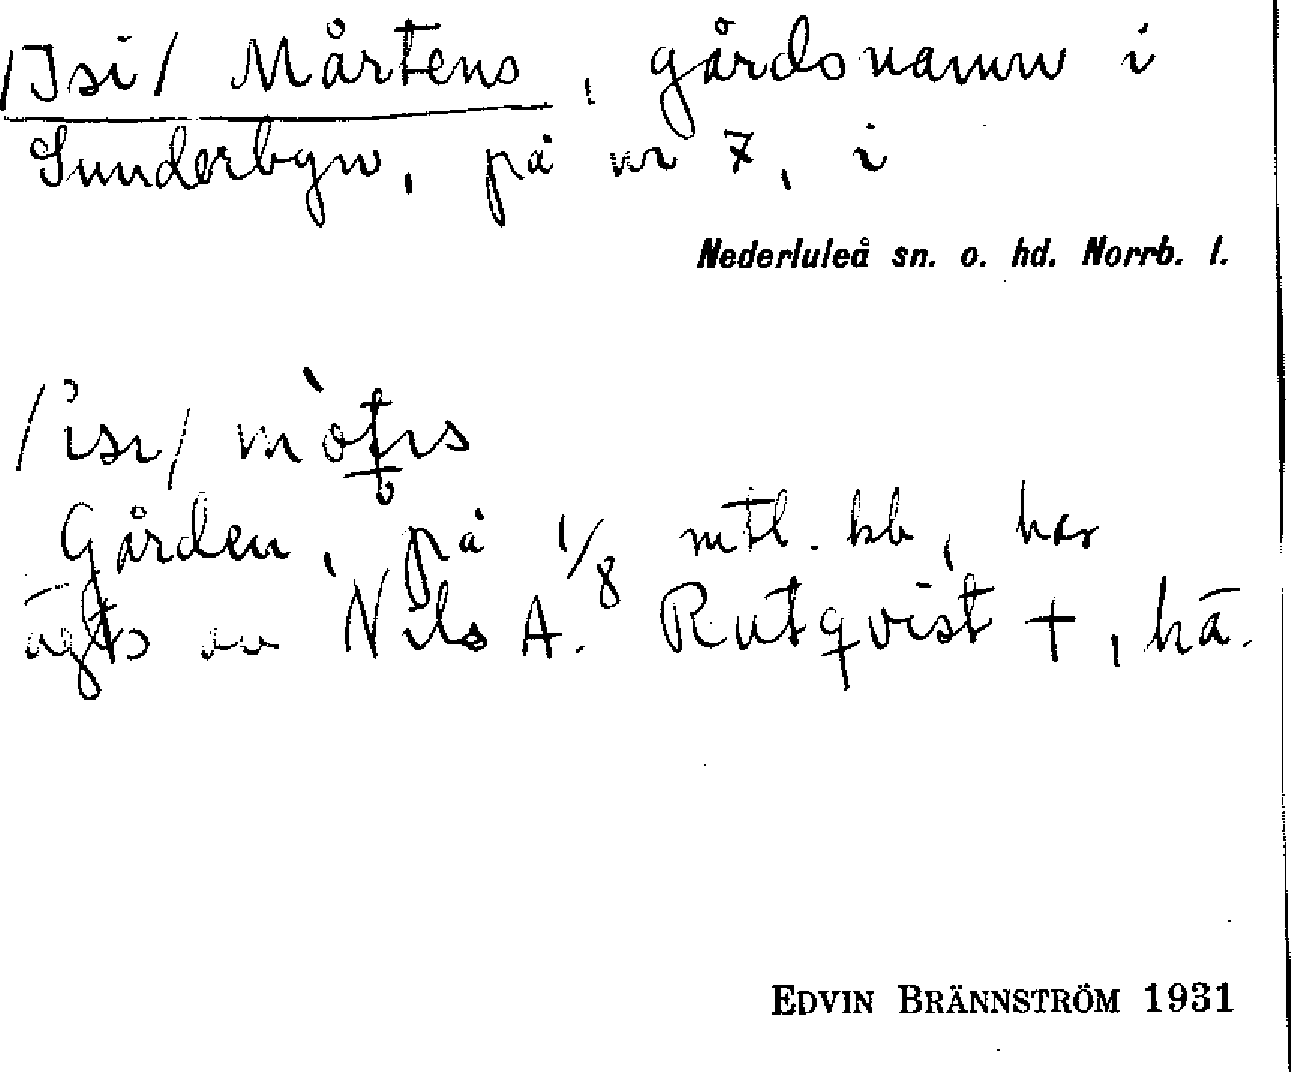 /Isi/ Mårtens, gårdsnamn i
Sunderbyn, på nr 7, i
Nederluleå sn. o. hd. Norrb. l.
Gården, på 1/8 mtl. kb, har
ägts av Nils A. Rutqvist †, hä.
EDVIN BRÄNNSTRÖM 1931